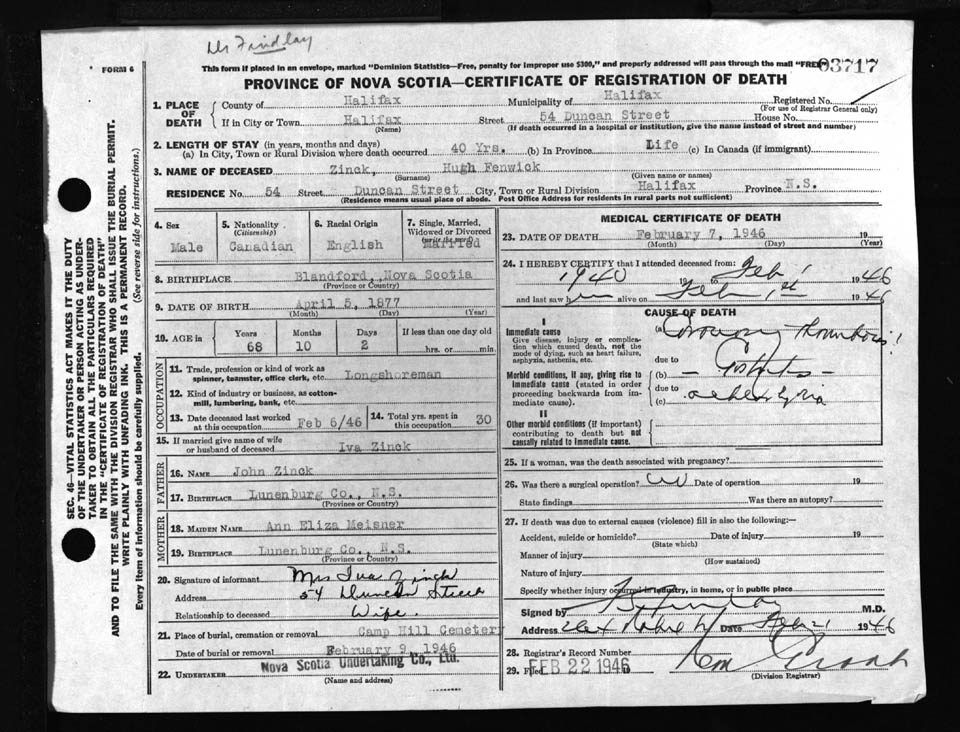 Dr Findlay
FORM 6
This form if placed in an envelope, marked "Dominion Statistics—Free, penalty for improper use $300," and properly addressed will pass through the mail "FREE"
03717
PROVINCE OF NOVA SCOTIA—CERTIFICATE OF REGISTRATION OF DEATH
SEC. 46—VITAL STATISTICS ACT MAKES IT THE DUTY
OF THE UNDERTAKER OR PERSON ACTING AS UNDER-
TAKER TO OBTAIN ALL THE PARTICULARS REQUIRED
IN THE "CERTIFICATE OF REGISTRATION OF DEATH"
AND TO FILE THE SAME WITH THE DIVISION REGISTRAR WHO SHALL ISSUE THE BURIAL PERMIT.
WRITE PLAINLY WITH UNFADING INK. THIS IS A PERMANENT RECORD.
Every item of information should be carefully supplied. (See reverse side for instructions.)
1. PLACE OF DEATH
County of Halifax Municipality of Halifax Registered No.
(For use of Registrar General only)
If in City or Town Halifax Street 54 Duncan Street House No.
(Name) (If death occurred in a hospital or institution, give the name instead of street and number)
2. LENGTH OF STAY (in years, months and days)
(a) In City, Town or Rural Division where death occurred 40 Yrs. (b) In Province Life (c) In Canada (if immigrant)
3. NAME OF DECEASED Zinck, Hugh Fenwick
(Surname) (Given name or names)
RESIDENCE No. 54 Street Duncan Street City, Town or Rural Division Halifax Province N.S.
(Residence means usual place of abode. Post Office Address for residents in rural parts not sufficient)
4. Sex
Male
5. Nationality
(Citizenship)
Canadian
6. Racial Origin
English
7. Single, Married,
Widowed or Divorced
(write the word)
Married
8. BIRTHPLACE Blandford, Nova Scotia
(Province or Country)
9. DATE OF BIRTH April 5, 1877
(Month) (Day) (Year)
10. AGE in Years Months Days If less than one day
68 10 2 hrs. or min.
OCCUPATION
11. Trade, profession or kind of work as
spinner, teamster, office clerk, etc. Longshoreman
12. Kind of industry or business, as cotton-
mill, lumbering, bank, etc.
13. Date deceased last worked
at this occupation Feb 6/46
14. Total yrs. spent in
this occupation 30
15. If married give name of wife
or husband of deceased Iva Zinck
FATHER
16. NAME John Zinck
17. BIRTHPLACE Lunenburg Co., N.S.
(Province or Country)
MOTHER
18. MAIDEN NAME Ann Eliza Meisner
19. BIRTHPLACE Lunenburg Co., N.S.
(Province or Country)
20. Signature of informant Mrs Iva Zinck
Address 54 Duncan Street
Relationship to deceased Wife.
21. Place of burial, cremation or removal Camp Hill Cemetery
Date of burial or removal February 9, 1946
22. UNDERTAKER Nova Scotia Undertaking Co., Ltd.
(Name and address)
MEDICAL CERTIFICATE OF DEATH
23. DATE OF DEATH February 7, 1946 19
(Month) (Day) (Year)
24. I HEREBY CERTIFY that I attended deceased from:
1940 19 to Feb 1 1946
and last saw him alive on Feb 1st 1946
CAUSE OF DEATH
I
Immediate cause
Give disease, injury or complica-
tion which caused death, not the
mode of dying, such as heart failure,
asphyxia, asthenia, etc.
(a) Coronary Thrombosis!
due to
Morbid conditions, if any, giving rise to
immediate cause (stated in order
proceeding backwards from im-
mediate cause).
(b)
due to
(c)
II
Other morbid conditions (if important)
contributing to death but not
causally related to immediate cause.
25. If a woman, was the death associated with pregnancy?
26. Was there a surgical operation? Date of operation 19
State findings Was there an autopsy?
27. If death was due to external causes (violence) fill in also the following:—
Accident, suicide or homicide? Date of injury 19
(State which)
Manner of injury
(How sustained)
Nature of injury
Specify whether injury occurred in industry, in home, or in public place
Signed by Findlay M.D.
Address Date Feb 21 1946
28. Registrar's Record Number
29. Filed FEB 22 1946
(Division Registrar)